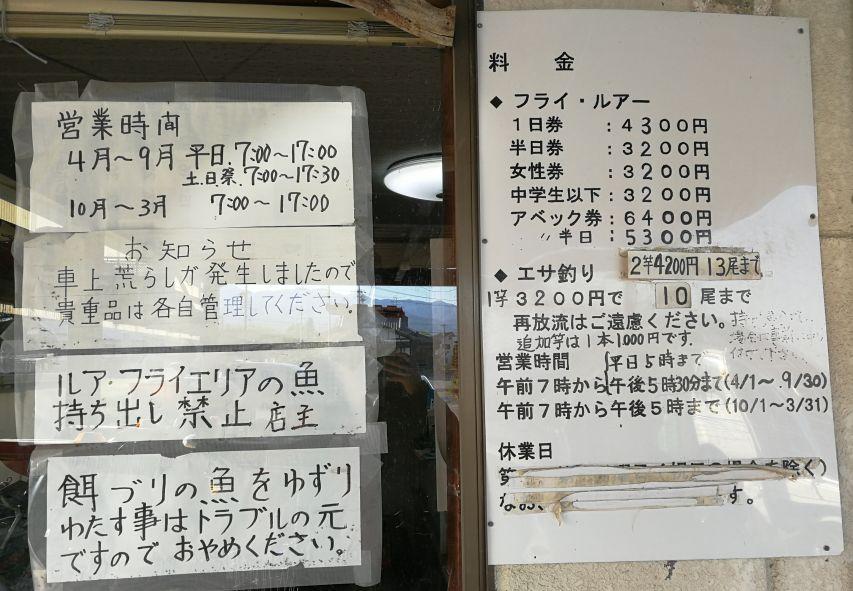 営業時間
4月～9月 平日.7:00～17:00
土.日祭.7:00～17:30
10月～3月 7:00～17:00
お知らせ
車上荒らしが発生しましたので
貴重品は各自管理してください.
ルア・フライエリアの魚
持ち出し禁止 店主
餌づりの魚をゆずり
わたす事はトラブルの元
ですのでおやめください。
料金
◆ フライ・ルアー
1日券 : 4300円
半日券 : 3200円
女性券 : 3200円
中学生以下 : 3200円
アベック券 : 6400円
〃 半日 : 5300円
◆ エサ釣り 2竿4200円 13尾まで
1竿3200円で 10 尾まで
再放流はご遠慮ください。
追加竿は1本1,000円です.
営業時間 平日5時まで
午前7時から午後5時30分まで(4/1～.9/30)
午前7時から午後5時まで(10/1～3/31)
休業日
を除く)
す。